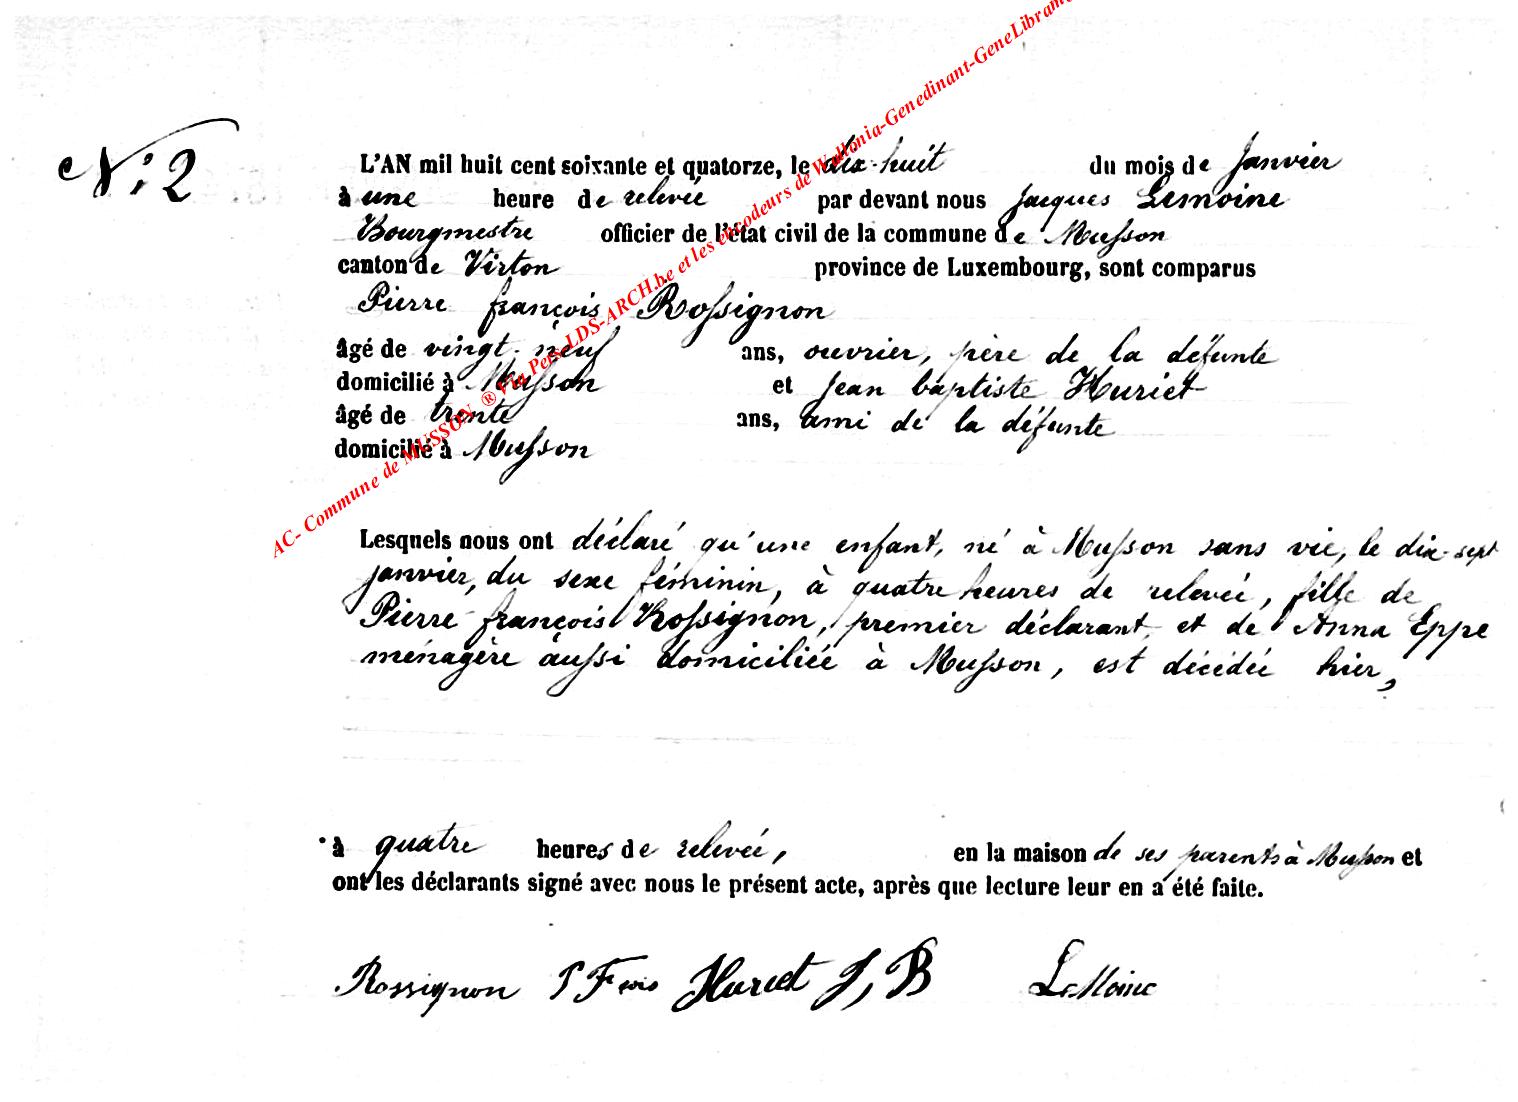 N° 2
L'AN mil huit cent soixante et quatorze, le dix-huit du mois de Janvier
à une heure de relevée par devant nous Jacques Lemoine
Bourgmestre officier de l'état civil de la commune de Musson
canton de Virton province de Luxembourg, sont comparus
Pierre françois Rossignon
âgé de vingt-neuf ans, ouvrier, père de la défunte
domicilié à Musson et Jean baptiste Huriet
âgé de trente ans, ami de la défunte
domicilié à Musson
Lesquels nous ont déclaré qu'une enfant, né à Musson sans vie, le dix-sept
janvier, du sexe féminin, à quatre heures de relevée, fille de
Pierre françois Rossignon, premier déclarant, et de Anna Eppe
ménagère aussi domiciliée à Musson, est décédée hier,
à quatre heures de relevée, en la maison de ses parents à Musson et
ont les déclarants signé avec nous le présent acte, après que lecture leur en a été faite.
Rossignon P Fçois Huriet J, B LeMoine
AC- Commune de MUSSON ® Via Perso LDS-ARCH.be et les encodeurs de Wallonia-Genedinant-GeneLibrame